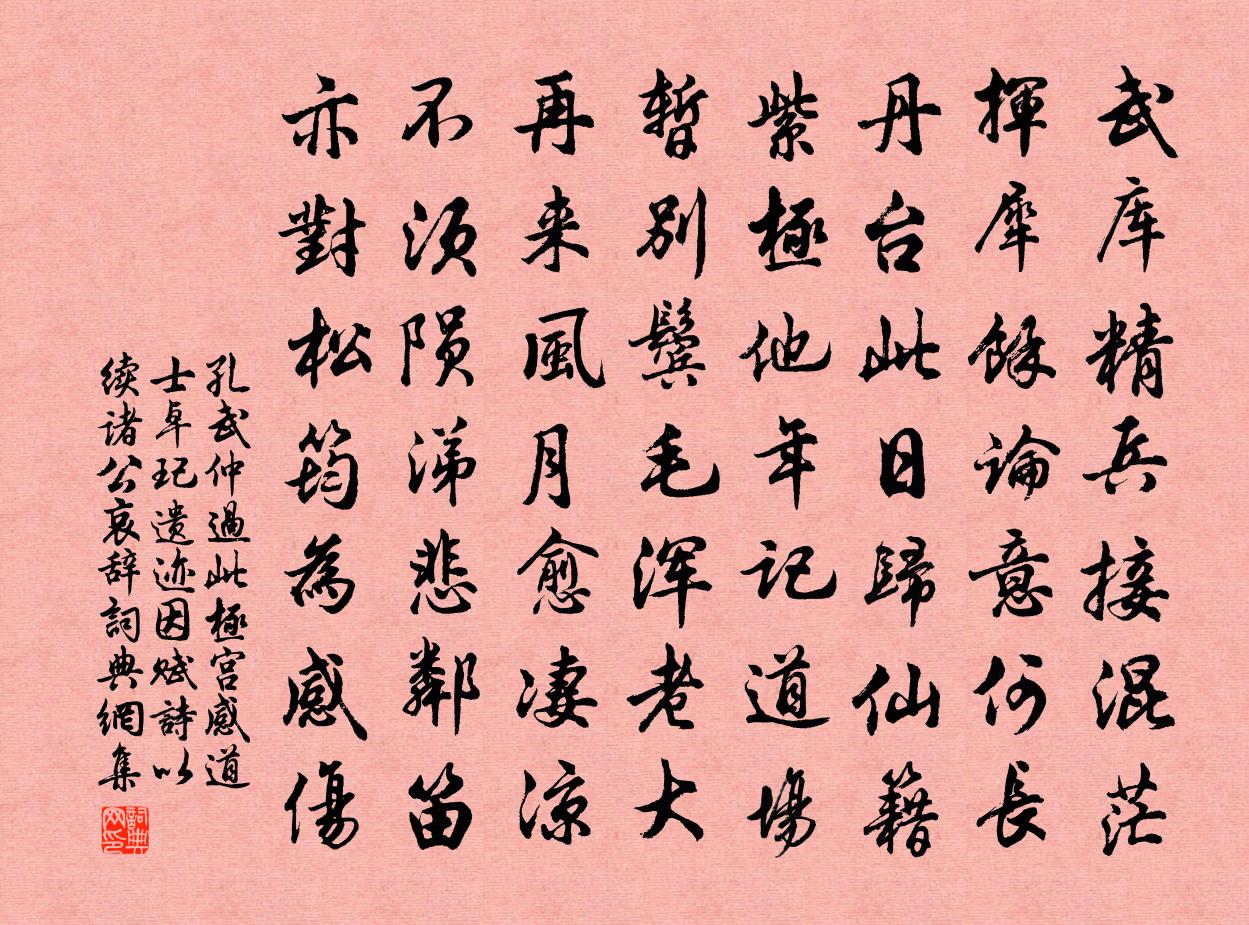 武库精兵接混茫
揮犀餘論意何長
丹台此日歸仙籍
紫極他年记道場
暫别鬓毛浑老大
再来風月愈凄凉
不须陨涕悲鄰笛
亦對松筠為感傷
孔武仲過此極宫感道
士卓玘遗迹因赋詩以
续诸公哀辞詞典網集
詞典网印